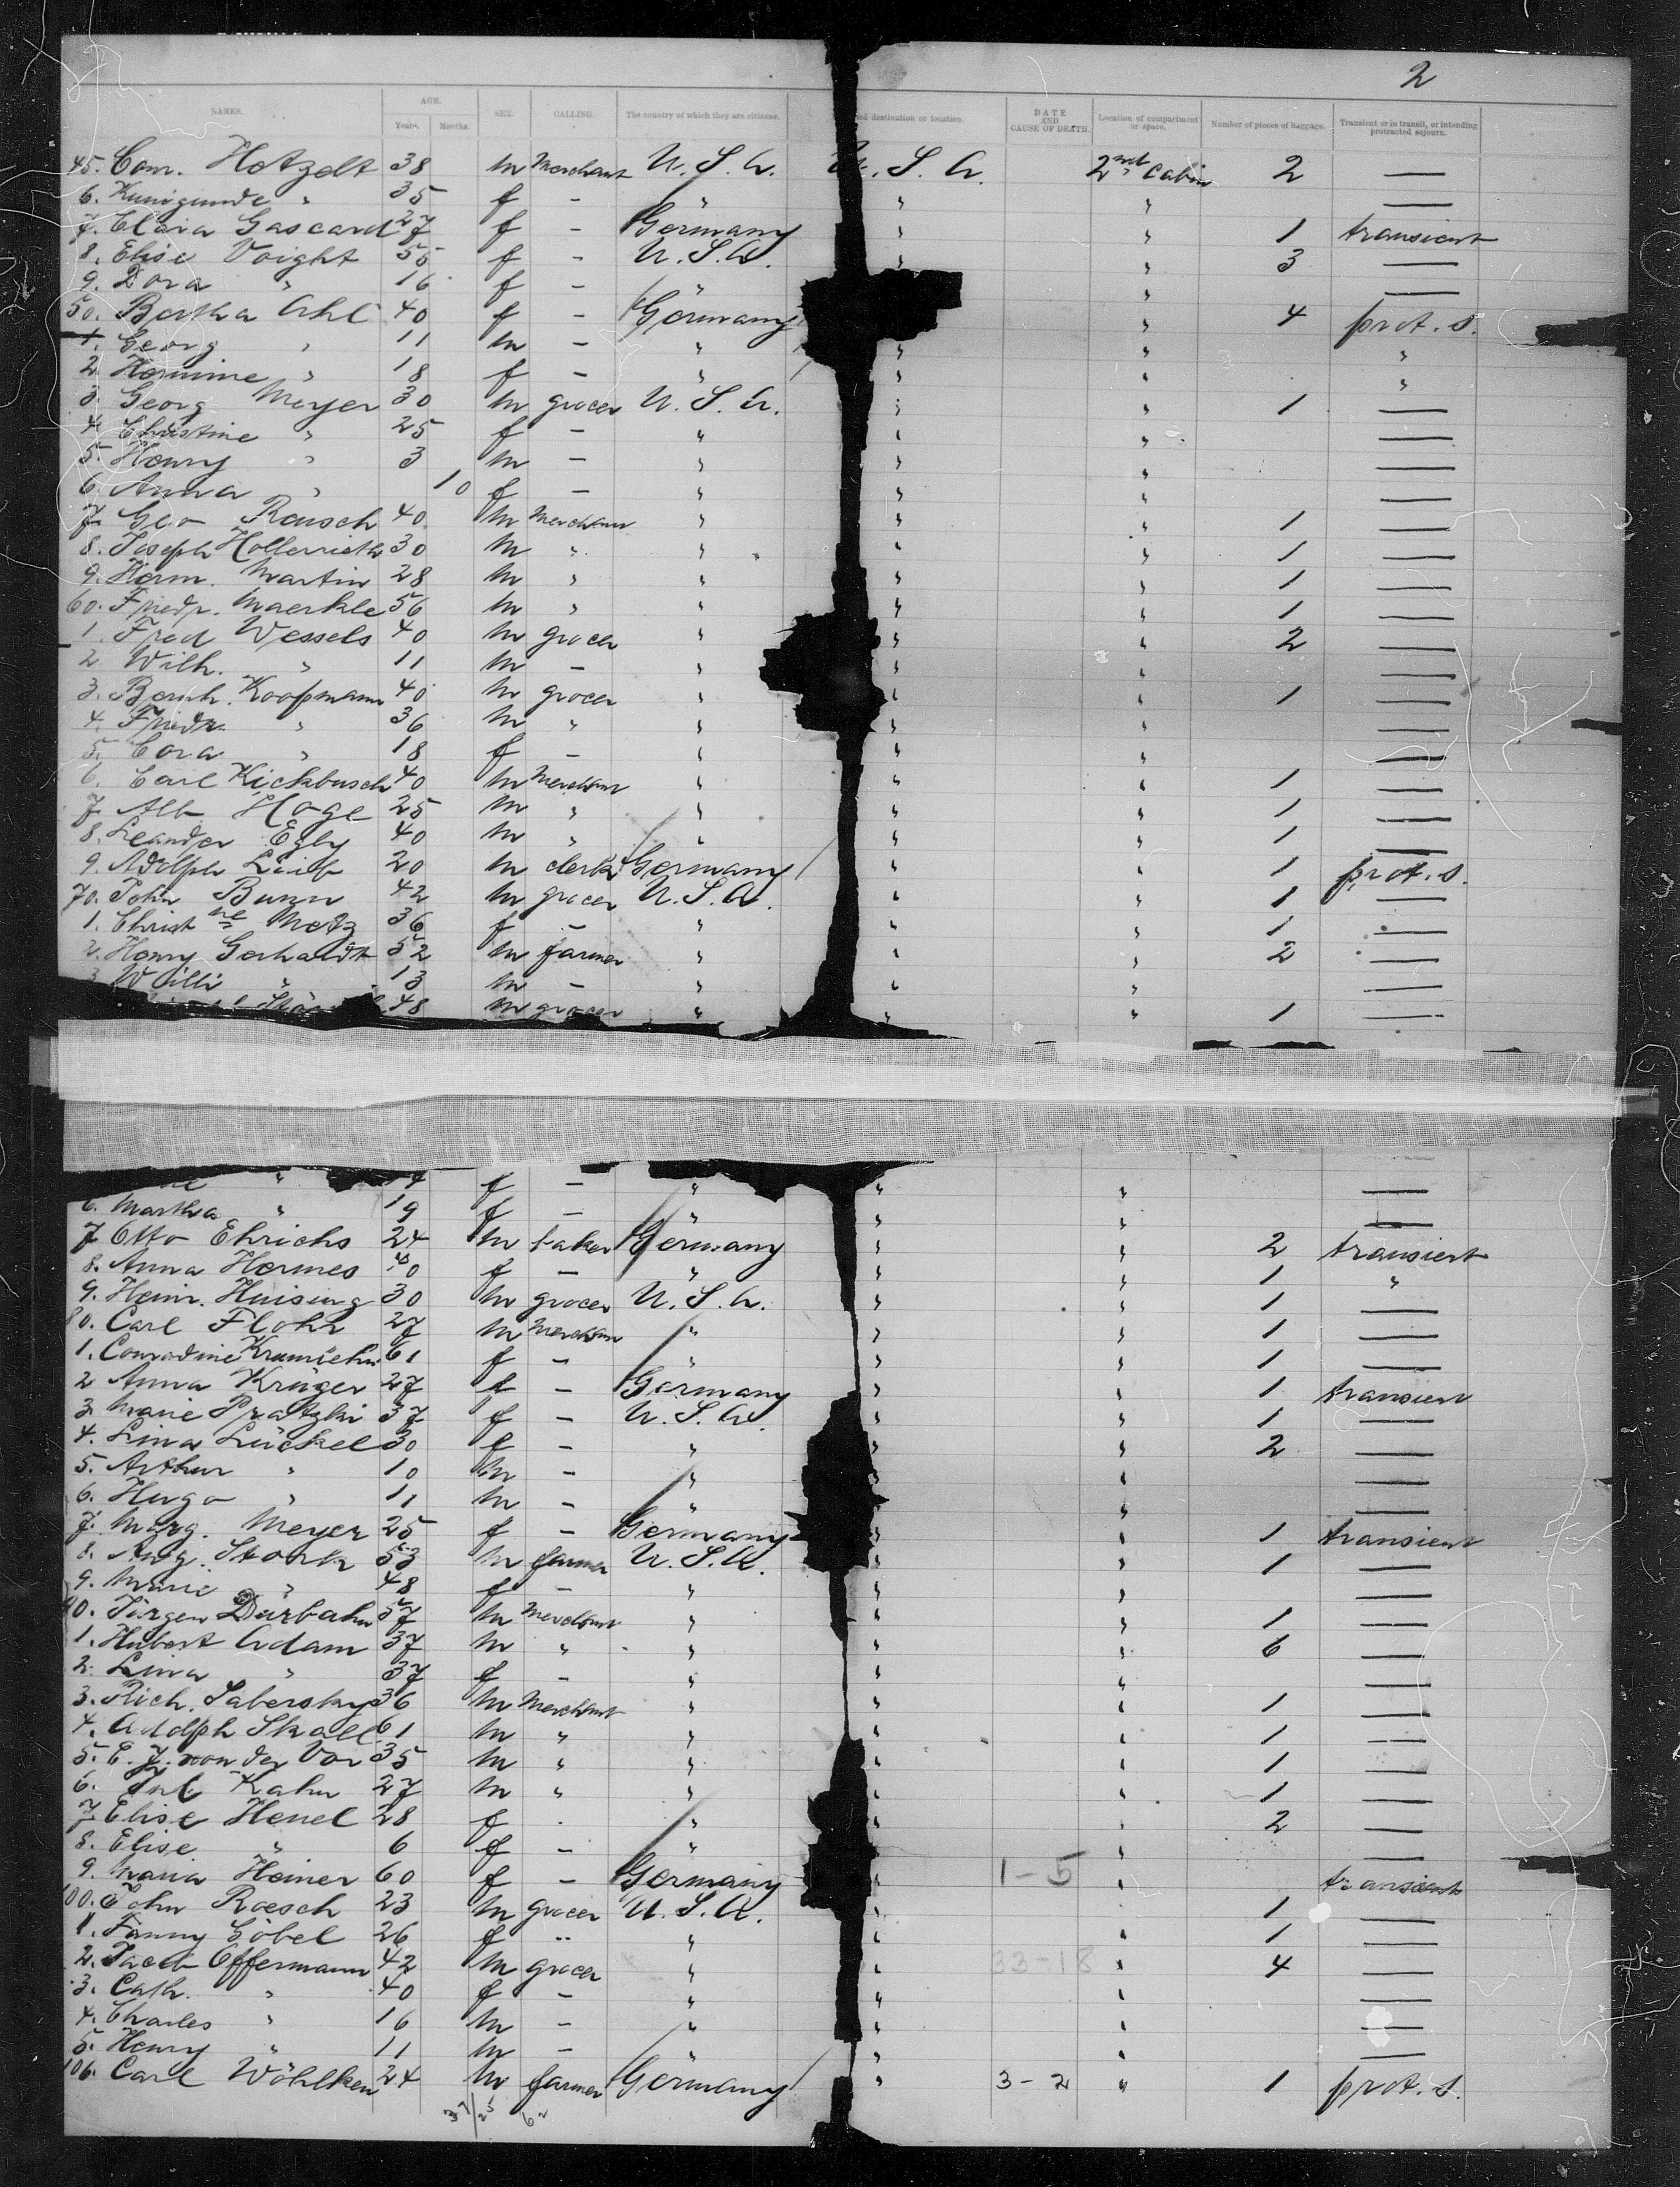 2
NAMES. AGE. Years. Months. SEX. CALLING. The country of which they are citizens. ed destination or location. DATE AND CAUSE OF DEATH. Location of compartment or space. Number of pieces of baggage. Transient or in transit, or intending protracted sojourn.
45. Com. Hotzelt 38 m Merchant U. S. A. U. S. A. 2nd Cabin 2 —
6. Kunigunde " 35 f — " " " —
7. Clara Gascard 27 f — Germany " " 1 transient
8. Elise Voight 55 f — U. S. A. " " 3 —
9. Dora " 16 f — " " —
50. Bertha Ahl 40 f — Germany " 4 prot. s.
1. Georg " 11 m — " " " "
2 Hermine " 18 f — " " " "
3. Georg Meyer 30 m grocer U. S. A. " " 1 —
4. Christine " 25 f — " " " —
5. Henry " 3 m — " " " —
6. Anna " 10 f — " " " —
7. Geo Rausch 40 m Merchant " " " 1 —
8. Joseph Hollerrieth 30 m " " " " 1 —
9. Herm. Martin 28 m " " " " 1 —
60. Friedr. Maerkle 56 m " " " " 1 —
1. Fred Wessels 40 m grocer " " " 2 —
2 Wilh. " 11 m — " " " —
3. Bernh. Koopmann 40 m grocer " " " 1 —
4. Friedr. " 36 m " " " " —
5. Cora " 18 f — " " " —
6. Carl Kickbusch 40 m Merchant " " " 1 —
7. Alb Hoge 25 m " " " " 1 —
8. Leander Egly 40 m " " " " 1 —
9. Adolph Laib 20 m clerk Germany " " 1 prot. s.
70. John Bunn 42 m grocer U. S. A. " " 1 —
1. Christne Motz 36 f — " " " 1 —
2. Henry Gerhaldt 52 m farmer " " " 2 —
3 Willi " 13 m — " " " —
48 m grocer " " " 1 —
" f — " " " —
6. Martha " 19 f — " " " —
7 Otto Ehrichs 24 m baker Germany " " 2 transient
8. Anna Hermes 40 f — " " " 1 "
9. Heinr. Huising 30 m grocer U. S. A. " " 1 —
80. Carl Flohr 27 m Merchant " " " 1 —
1. Conradine Krumsiehn 61 f — " " " 1 —
2 Anna Krüger 27 f — Germany " " 1 transient
3. Marie Pratzki 37 f — U. S. A. " " 1 —
4. Lina Lückel 30 f — " " " 2 —
5. Arthur " 10 m — " " " —
6. Hugo " 11 m — " " —
7. Marg. Meyer 25 f — Germany " " 1 transient
8. Aug. Stork 53 m farmer U. S. A. " " 1 —
9. Marie " 48 f — " " " —
90. Jürgen Dürbahn 57 m Merchant " " " 1 —
1. Hubert Adam 37 m " " " " 6 —
2. Lina " 37 f — " " " —
3. Rich. Sabersky 36 m Merchant " " " 1 —
4. Adolph Skall 61 m " " " " 1 —
5. C. J. von der Vor 35 m " " " " 1 —
6. Jul Kahn 27 m " " " " 1 —
7 Elise Henel 28 f " " " 2 —
8. Elise " 6 f — " " " —
9. Maria Heiner 60 f — Germany " 1-5 " transient
100. John Roesch 23 m grocer U. S. A. " " 1 —
1. Fanny Göbel 26 f " " " 1 —
2. Jacob Offermann 42 m grocer " " 33-18 " 4 —
3. Cath. " 40 f — " " " —
4. Charles " 16 m — " " " —
5. Henry " 11 m — " " " —
106. Carl Wöhlken 24 m farmer Germany " 3-2 " 1 prot. s.